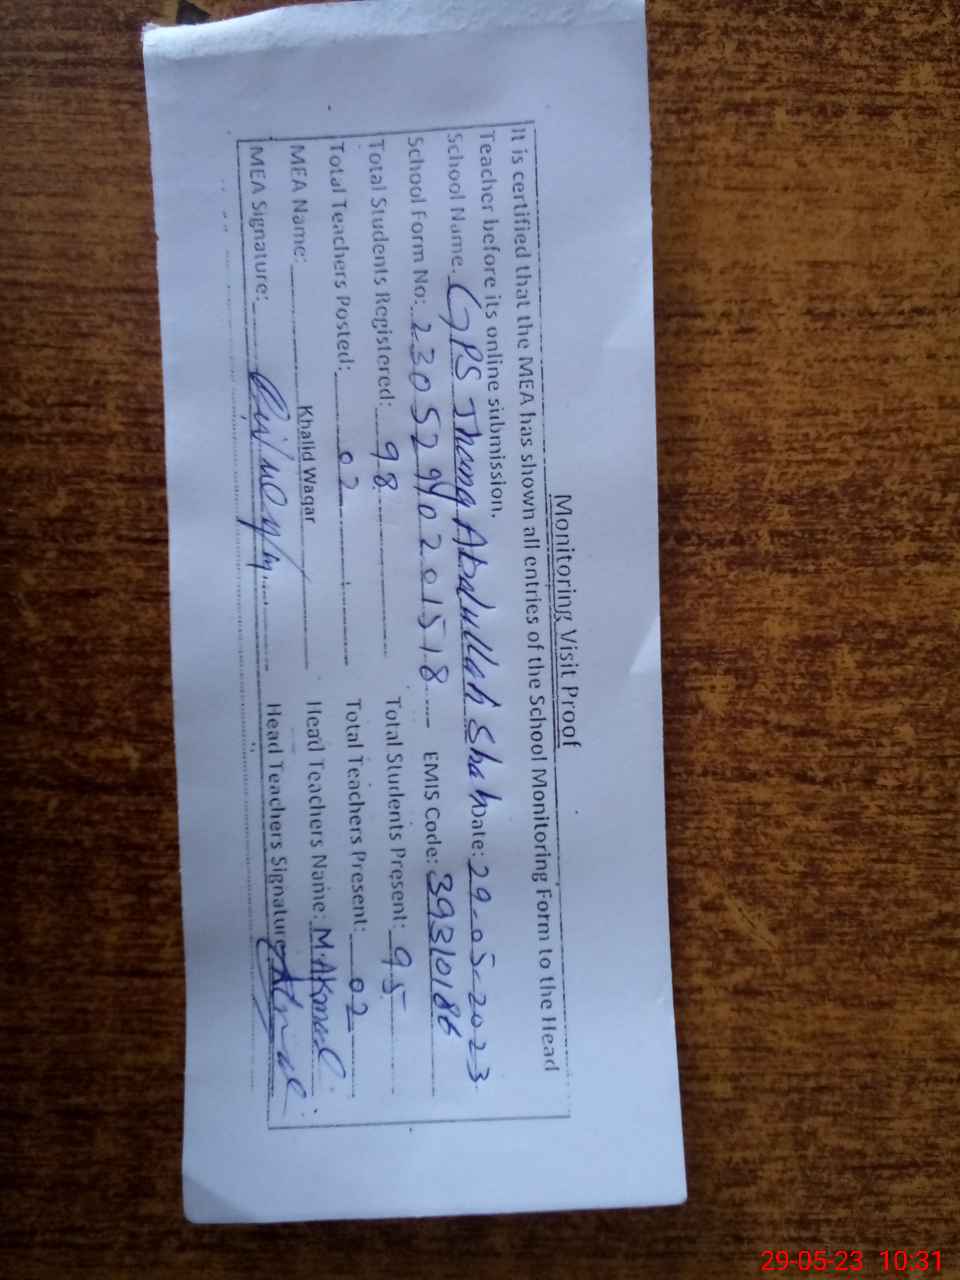 Monitoring Visit Proof
It is certified that the MEA has shown all entries of the School Monitoring Form to the Head
Teacher before its online submission.
School Name. GPS Thang Abdullah Shah Date: 29-05-2023
School Form No: 23052940201518 EMIS Code: 39310186
Total Students Registered: 98 Total Students Present: 95
Total Teachers Posted: 02 Total Teachers Present: 02
MEA Name: Khalid Waqar Head Teachers Name: M. AKmal
MEA Signature: Head Teachers Signature
29-05-23 10:31